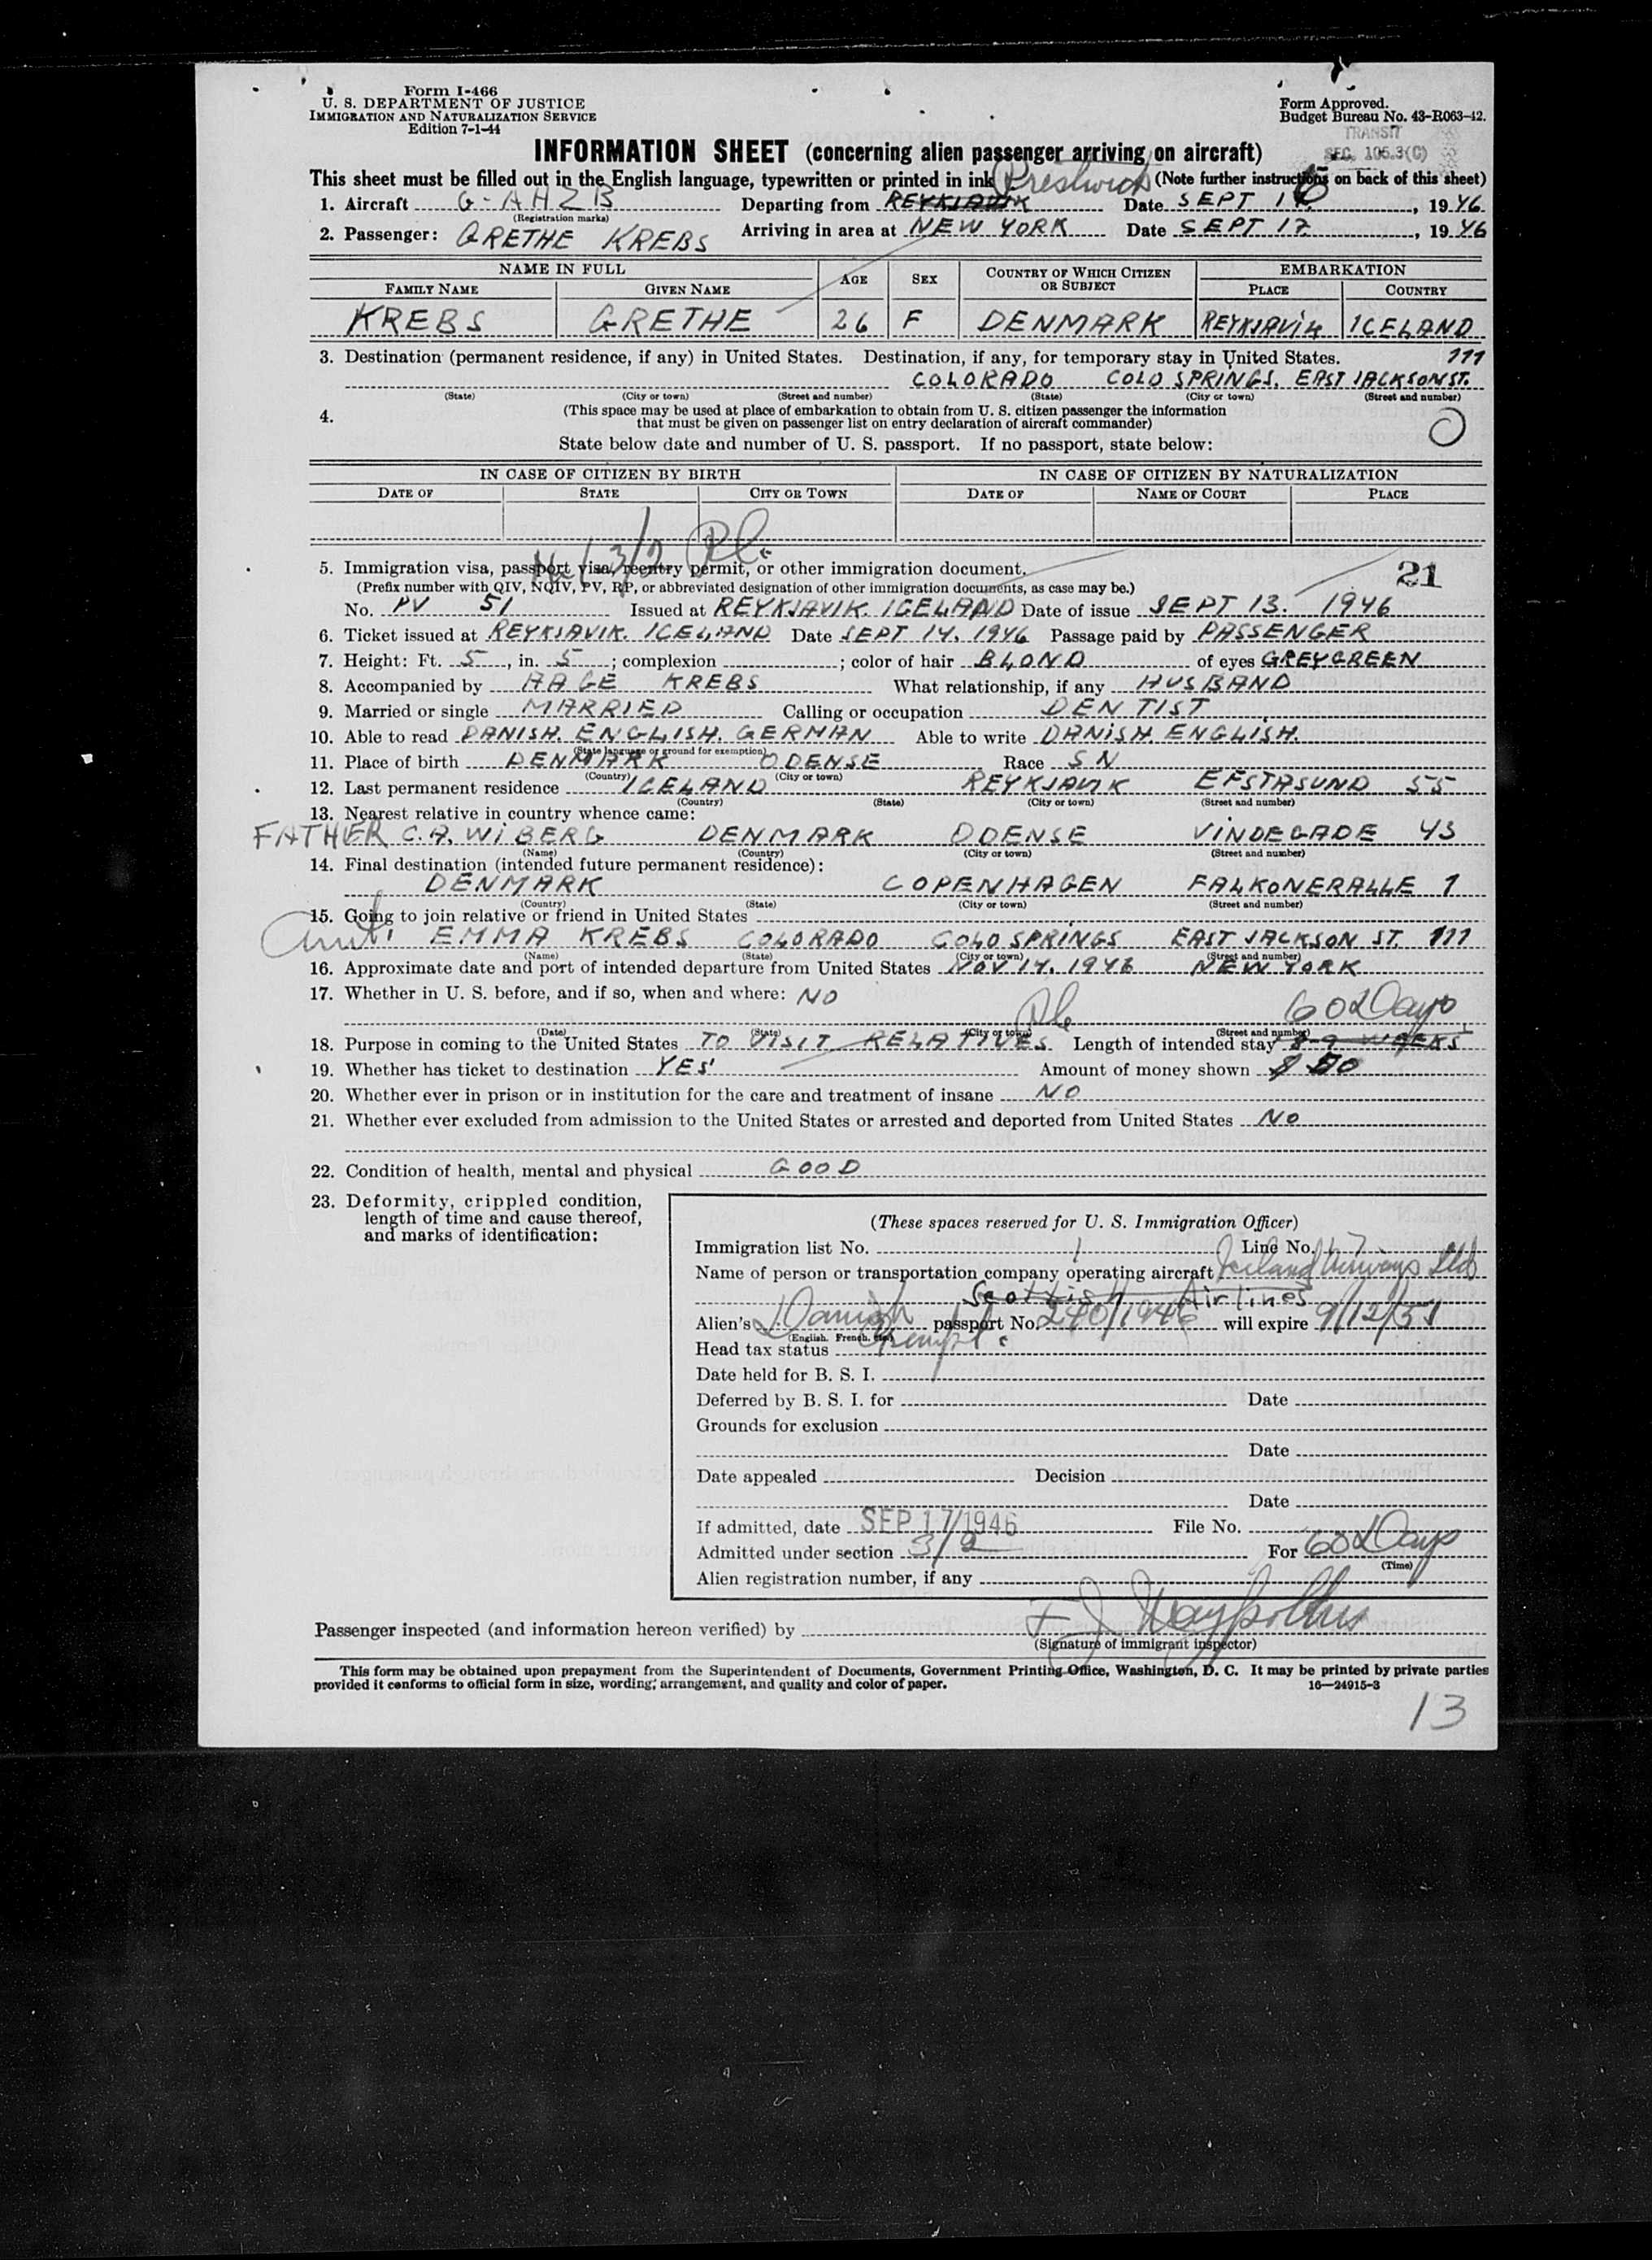 Form I-466
U. S. DEPARTMENT OF JUSTICE
IMMIGRATION AND NATURALIZATION SERVICE
Edition 7-1-44
Form Approved.
Budget Bureau No. 43-R063-42.
TRANSIT
SEC. 105.3(C)
INFORMATION SHEET (concerning alien passenger arriving on aircraft)
This sheet must be filled out in the English language, typewritten or printed in ink Prestwick (Note further instructions on back of this sheet)
1. Aircraft G-AHZB Departing from REYKJAVIK Date SEPT 16, 1946
(Registration marks)
2. Passenger: GRETHE KREBS Arriving in area at NEW YORK Date SEPT 17, 1946
NAME IN FULL AGE SEX COUNTRY OF WHICH CITIZEN OR SUBJECT EMBARKATION
FAMILY NAME GIVEN NAME PLACE COUNTRY
KREBS GRETHE 26 F DENMARK REYKJAVIK ICELAND
3. Destination (permanent residence, if any) in United States. Destination, if any, for temporary stay in United States. 111
COLORADO COLO SPRINGS. EAST JACKSON ST.
(State) (City or town) (Street and number) (State) (City or town) (Street and number)
4. (This space may be used at place of embarkation to obtain from U. S. citizen passenger the information
that must be given on passenger list on entry declaration of aircraft commander)
State below date and number of U. S. passport. If no passport, state below:
IN CASE OF CITIZEN BY BIRTH IN CASE OF CITIZEN BY NATURALIZATION
DATE OF STATE CITY OR TOWN DATE OF NAME OF COURT PLACE
5. Immigration visa, passport visa, reentry permit, or other immigration document. 21
(Prefix number with QIV, NQIV, PV, RP, or abbreviated designation of other immigration documents, as case may be.)
No. PV 51 Issued at REYKJAVIK ICELAND Date of issue SEPT 13. 1946
6. Ticket issued at REYKJAVIK. ICELAND Date SEPT 14. 1946 Passage paid by PASSENGER
7. Height: Ft. 5, in. 5; complexion ; color of hair BLOND of eyes GREYGREEN
8. Accompanied by AAGE KREBS What relationship, if any HUSBAND
9. Married or single MARRIED Calling or occupation DENTIST
10. Able to read DANISH. ENGLISH. GERMAN Able to write DANISH. ENGLISH.
(State language or ground for exemption)
11. Place of birth DENMARK ODENSE Race SN
(Country) (City or town)
12. Last permanent residence ICELAND REYKJAVIK EFSTASUND 55
(Country) (State) (City or town) (Street and number)
13. Nearest relative in country whence came:
FATHER C.A. WIBERG DENMARK ODENSE VINDEGADE 43
(Name) (Country) (City or town) (Street and number)
14. Final destination (intended future permanent residence):
DENMARK COPENHAGEN FALKONERALLE 1
(Country) (State) (City or town) (Street and number)
15. Going to join relative or friend in United States
Aunt: EMMA KREBS COLORADO COLO SPRINGS EAST JACKSON ST. 111
(Name) (State) (City or town) (Street and number)
16. Approximate date and port of intended departure from United States NOV 14. 1946 NEW YORK
17. Whether in U. S. before, and if so, when and where: NO
60 Days
(Date) (State) (City or town) (Street and number)
18. Purpose in coming to the United States TO VISIT RELATIVES Length of intended stay 8-9 WEEKS
19. Whether has ticket to destination YES Amount of money shown
20. Whether ever in prison or in institution for the care and treatment of insane NO
21. Whether ever excluded from admission to the United States or arrested and deported from United States NO
22. Condition of health, mental and physical GOOD
23. Deformity, crippled condition,
length of time and cause thereof,
and marks of identification:
(These spaces reserved for U. S. Immigration Officer)
Immigration list No. 1 Line No. 17
Name of person or transportation company operating aircraft Iceland Airways Ltd
Scottish Airlines
Alien's Danish passport No. 240/1946 will expire 9/12/51
(English, French, etc.)
Head tax status Exempt
Date held for B. S. I.
Deferred by B. S. I. for Date
Grounds for exclusion
Date
Date appealed Decision
Date
If admitted, date SEP 17 1946 File No.
Admitted under section 3/2 For 60 Days
(Time)
Alien registration number, if any
Passenger inspected (and information hereon verified) by
(Signature of immigrant inspector)
This form may be obtained upon prepayment from the Superintendent of Documents, Government Printing Office, Washington, D. C. It may be printed by private parties
provided it conforms to official form in size, wording, arrangement, and quality and color of paper. 16—24915-3
13